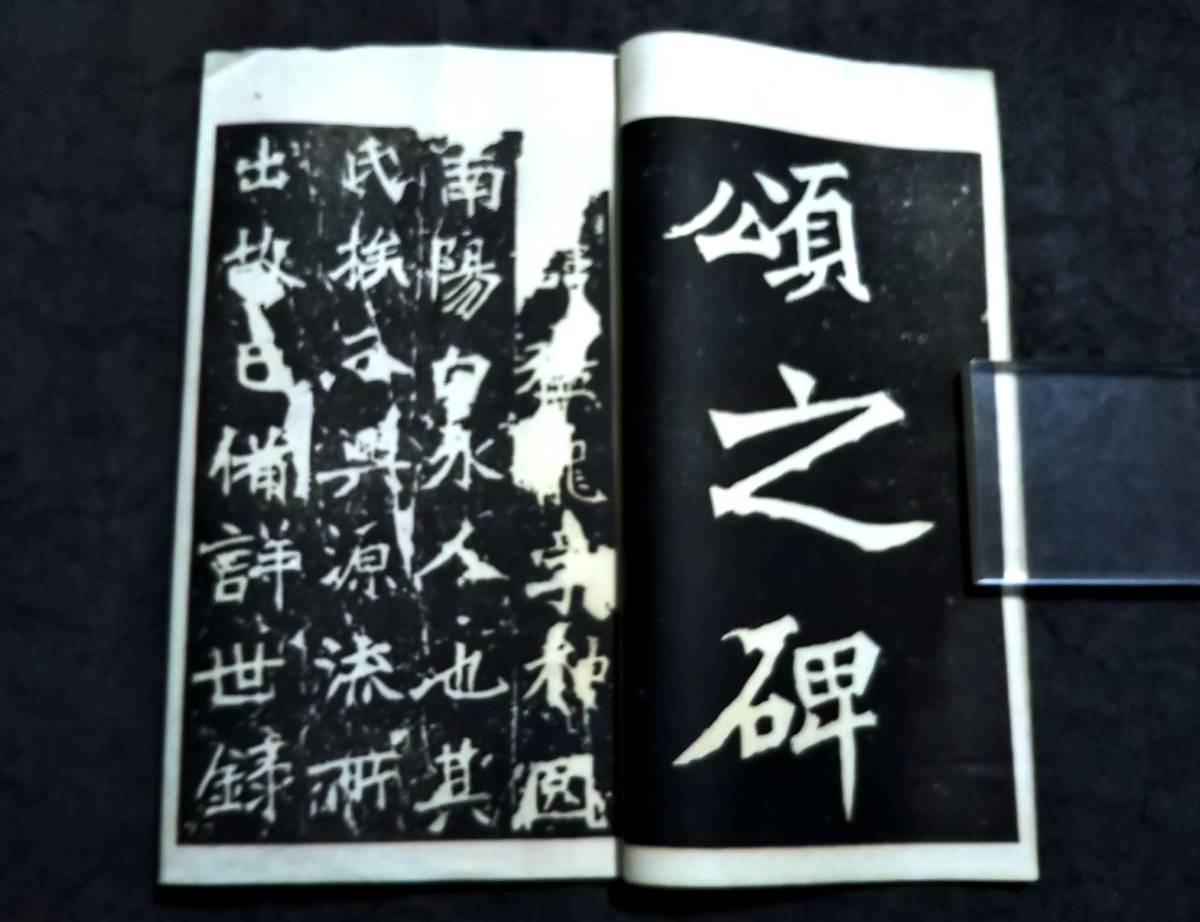 頌之碑
猛龍字神冏
南陽白水人也其
氏族分興源流所
出故已備詳世錄